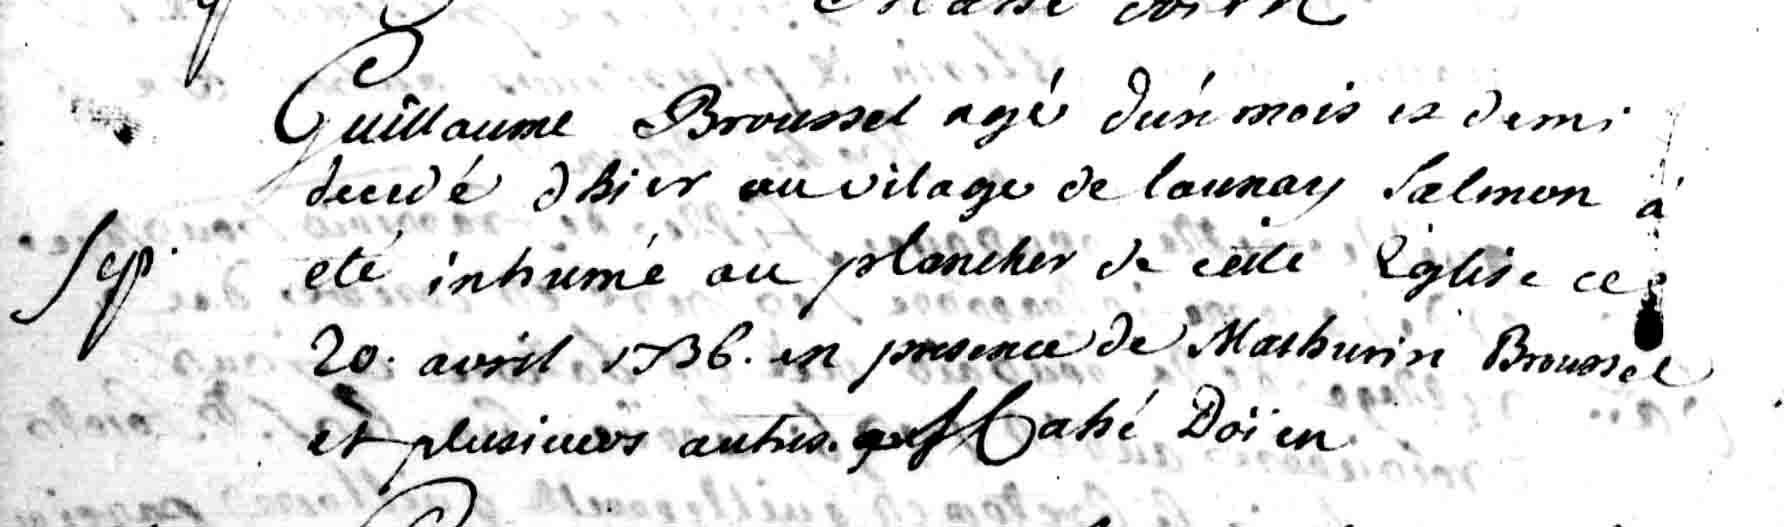 Mahé Doïen
Guillaume Broussel agé d'un mois et demi
decedé d'hier au vilage de launay Salmon à
eté inhumé au plancher de cette Eglise ce
Sep.
20. avril 1736. en presence de Mathurin Broussel
et plusieurs autres. Mahé Doïen